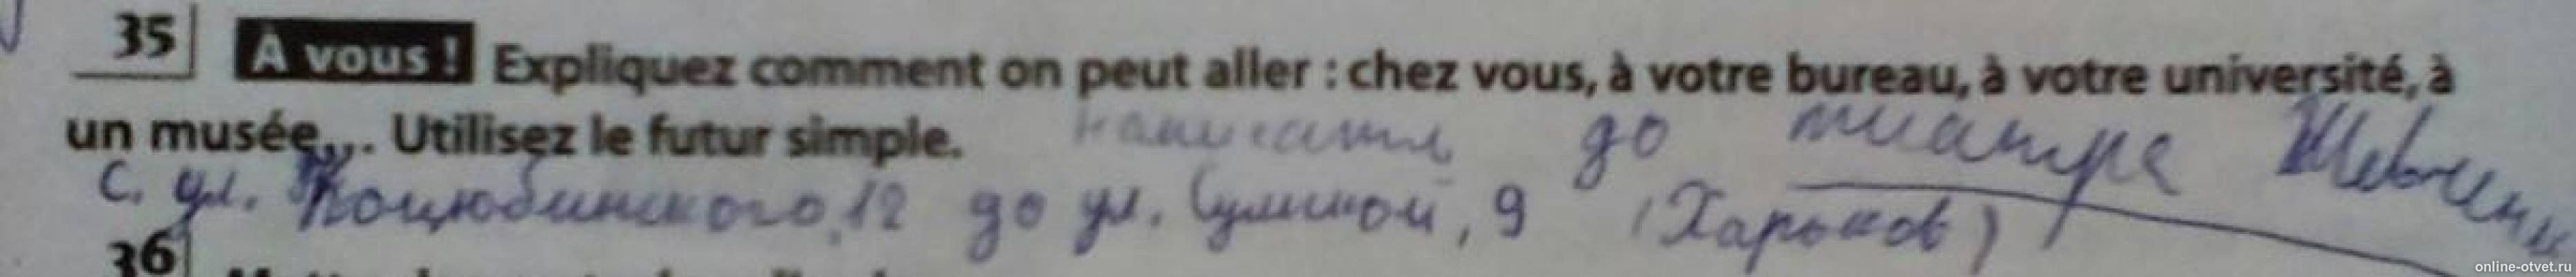 35 À vous ! Expliquez comment on peut aller : chez vous, à votre bureau, à votre université, à
un musée... Utilisez le futur simple. написать до театра Шевченк
с. ул. Коцюбинского, 12 до ул. Сумской, 9 (Харьков)
36
online-otvet.ru